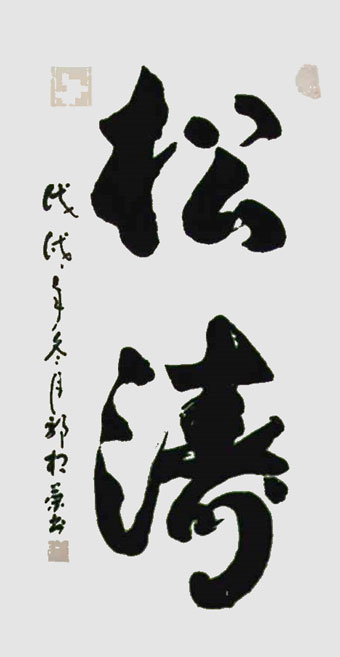 松涛
戊戌年冬月郭 书